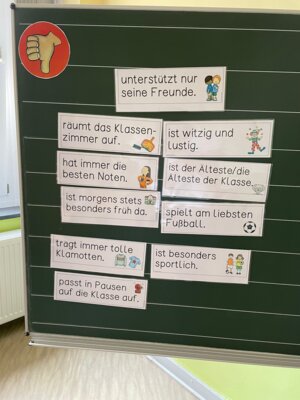 unterstützt nur
seine Freunde.
räumt das Klassen-
zimmer auf.
ist witzig und
lustig.
hat immer die
besten Noten.
ist der Älteste/die
Älteste der Klasse.
ist morgens stets
besonders früh da.
spielt am liebsten
Fußball.
trägt immer tolle
Klamotten.
ist besonders
sportlich.
passt in Pausen
auf die Klasse auf.